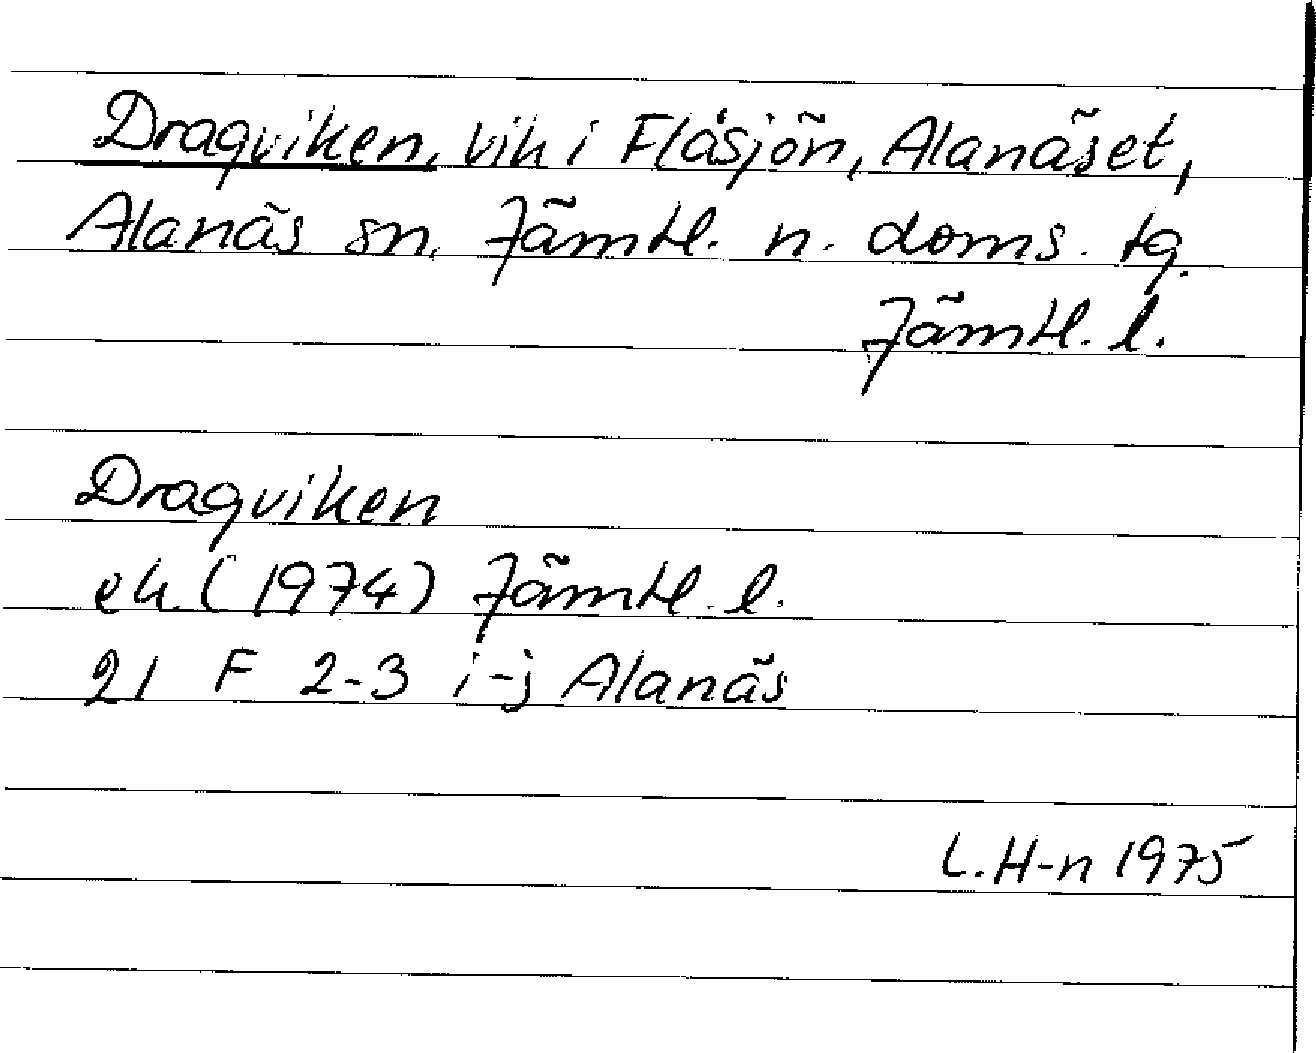 Dragviken, vik i Flåsjön, Alanäset,
Alanäs sn. Jämtl. n. doms. tg.
Jämtl. l.
Dragviken
ek. (1974) Jämtl. l.
21 F 2-3 i-j Alanäs
L. H-n 1975